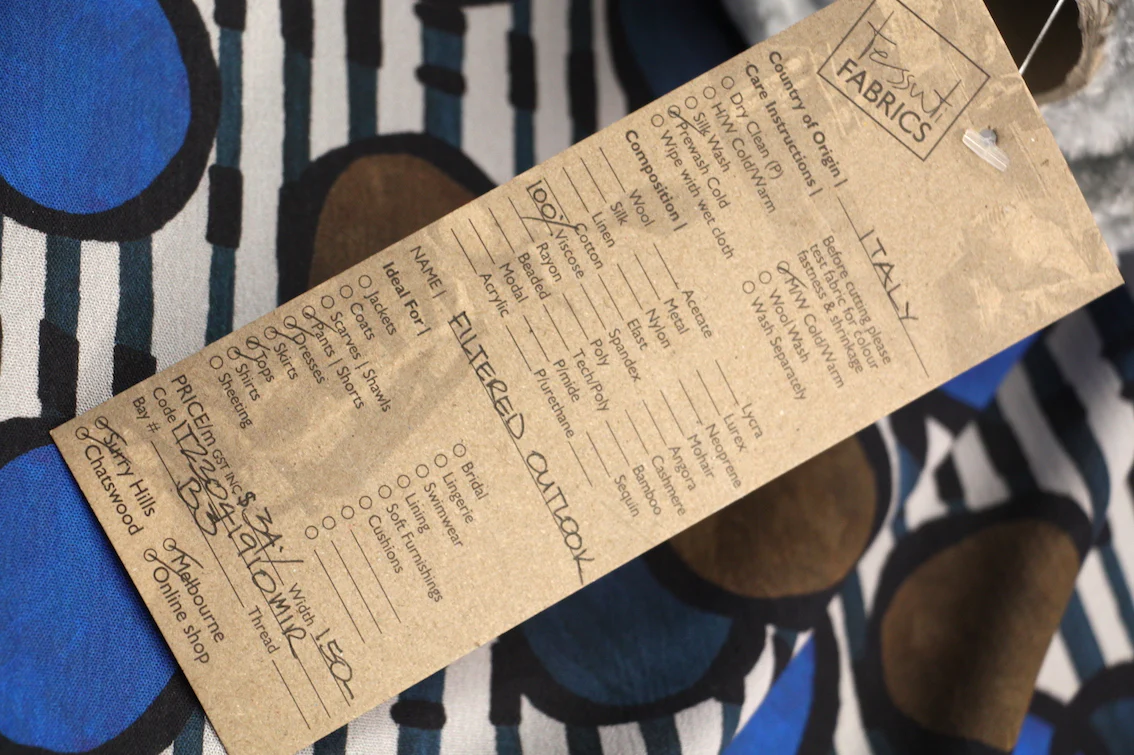 tessuti
FABRICS
Country of Origin | ITALY
Care Instructions |
Before cutting please
test fabric for colour
fastness & shrinkage
Dry Clean (P)
H/W Cold/Warm
Silk Wash
Prewash Cold
Wipe with wet cloth
M/W Cold/Warm
Wool Wash
Wash Separately
Composition |
Wool
Silk
Linen
Cotton
100% Viscose
Rayon
Beaded
Modal
Acrylic
Acetate
Metal
Nylon
Elast
Spandex
Poly
Tech/Poly
P/mide
P/urethane
Lycra
Lurex
Neoprene
Mohair
Angora
Cashmere
Bamboo
Sequin
NAME | FILTERED OUTLOOK
Ideal For |
Jackets
Coats
Scarves | Shawls
Pants | Shorts
Dresses
Skirts
Tops
Shirts
Sheeting
Bridal
Lingerie
Swimwear
Lining
Soft Furnishings
Cushions
PRICE/m GST INC $ 34.- Width 150
Code
Bay # B3 Thread
Surry Hills
Chatswood
Melbourne
Online shop